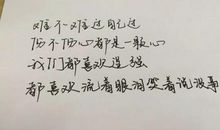 难不难过自己过
伤不伤心都是一颗心
我们都喜欢逞强
都喜欢流着眼泪笑着说没事